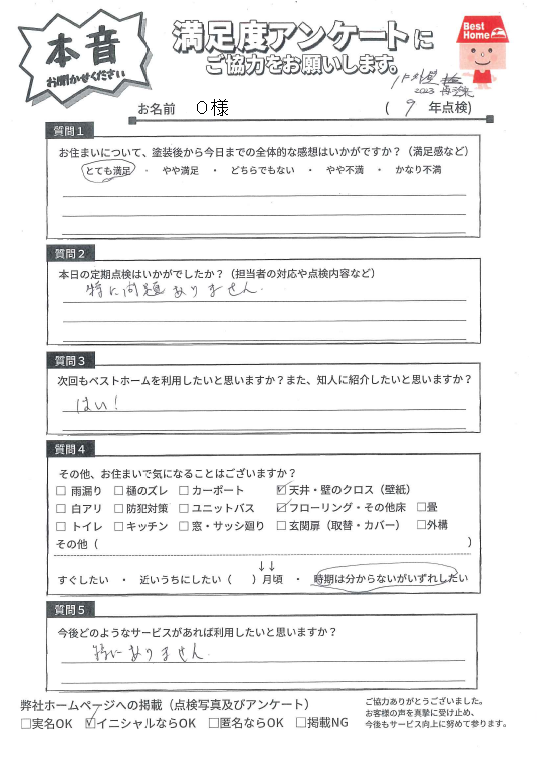 本音
お聞かせください
満足度アンケートに
ご協力をお願いします。
Best
Home
2023
お名前 O様 ( 9 年点検)
質問1
お住まいについて、塗装後から今日までの全体的な感想はいかがですか？（満足感など）
とても満足 ・ やや満足 ・ どちらでもない ・ やや不満 ・ かなり不満
質問2
本日の定期点検はいかがでしたか？（担当者の対応や点検内容など）
特に問題ありません.
質問3
次回もベストホームを利用したいと思いますか？また、知人に紹介したいと思いますか？
はい！
質問4
その他、お住まいで気になることはございますか？
☐ 雨漏り ☐ 樋のズレ ☐ カーポート ☑ 天井・壁のクロス（壁紙）
☐ 白アリ ☐ 防犯対策 ☐ ユニットバス ☑ フローリング・その他床 ☐畳
☐ トイレ ☐ キッチン ☐ 窓・サッシ廻り ☐ 玄関扉（取替・カバー） ☐外構
その他（ ）
↓↓
すぐしたい ・ 近いうちにしたい（ ）月頃 ・ 時期は分からないがいずれしたい
質問5
今後どのようなサービスがあれば利用したいと思いますか？
特にありません.
弊社ホームページへの掲載（点検写真及びアンケート）
☐実名OK ☑イニシャルならOK ☐匿名ならOK ☐掲載NG
ご協力ありがとうございました。
お客様の声を真摯に受け止め、
今後もサービス向上に努めて参ります。